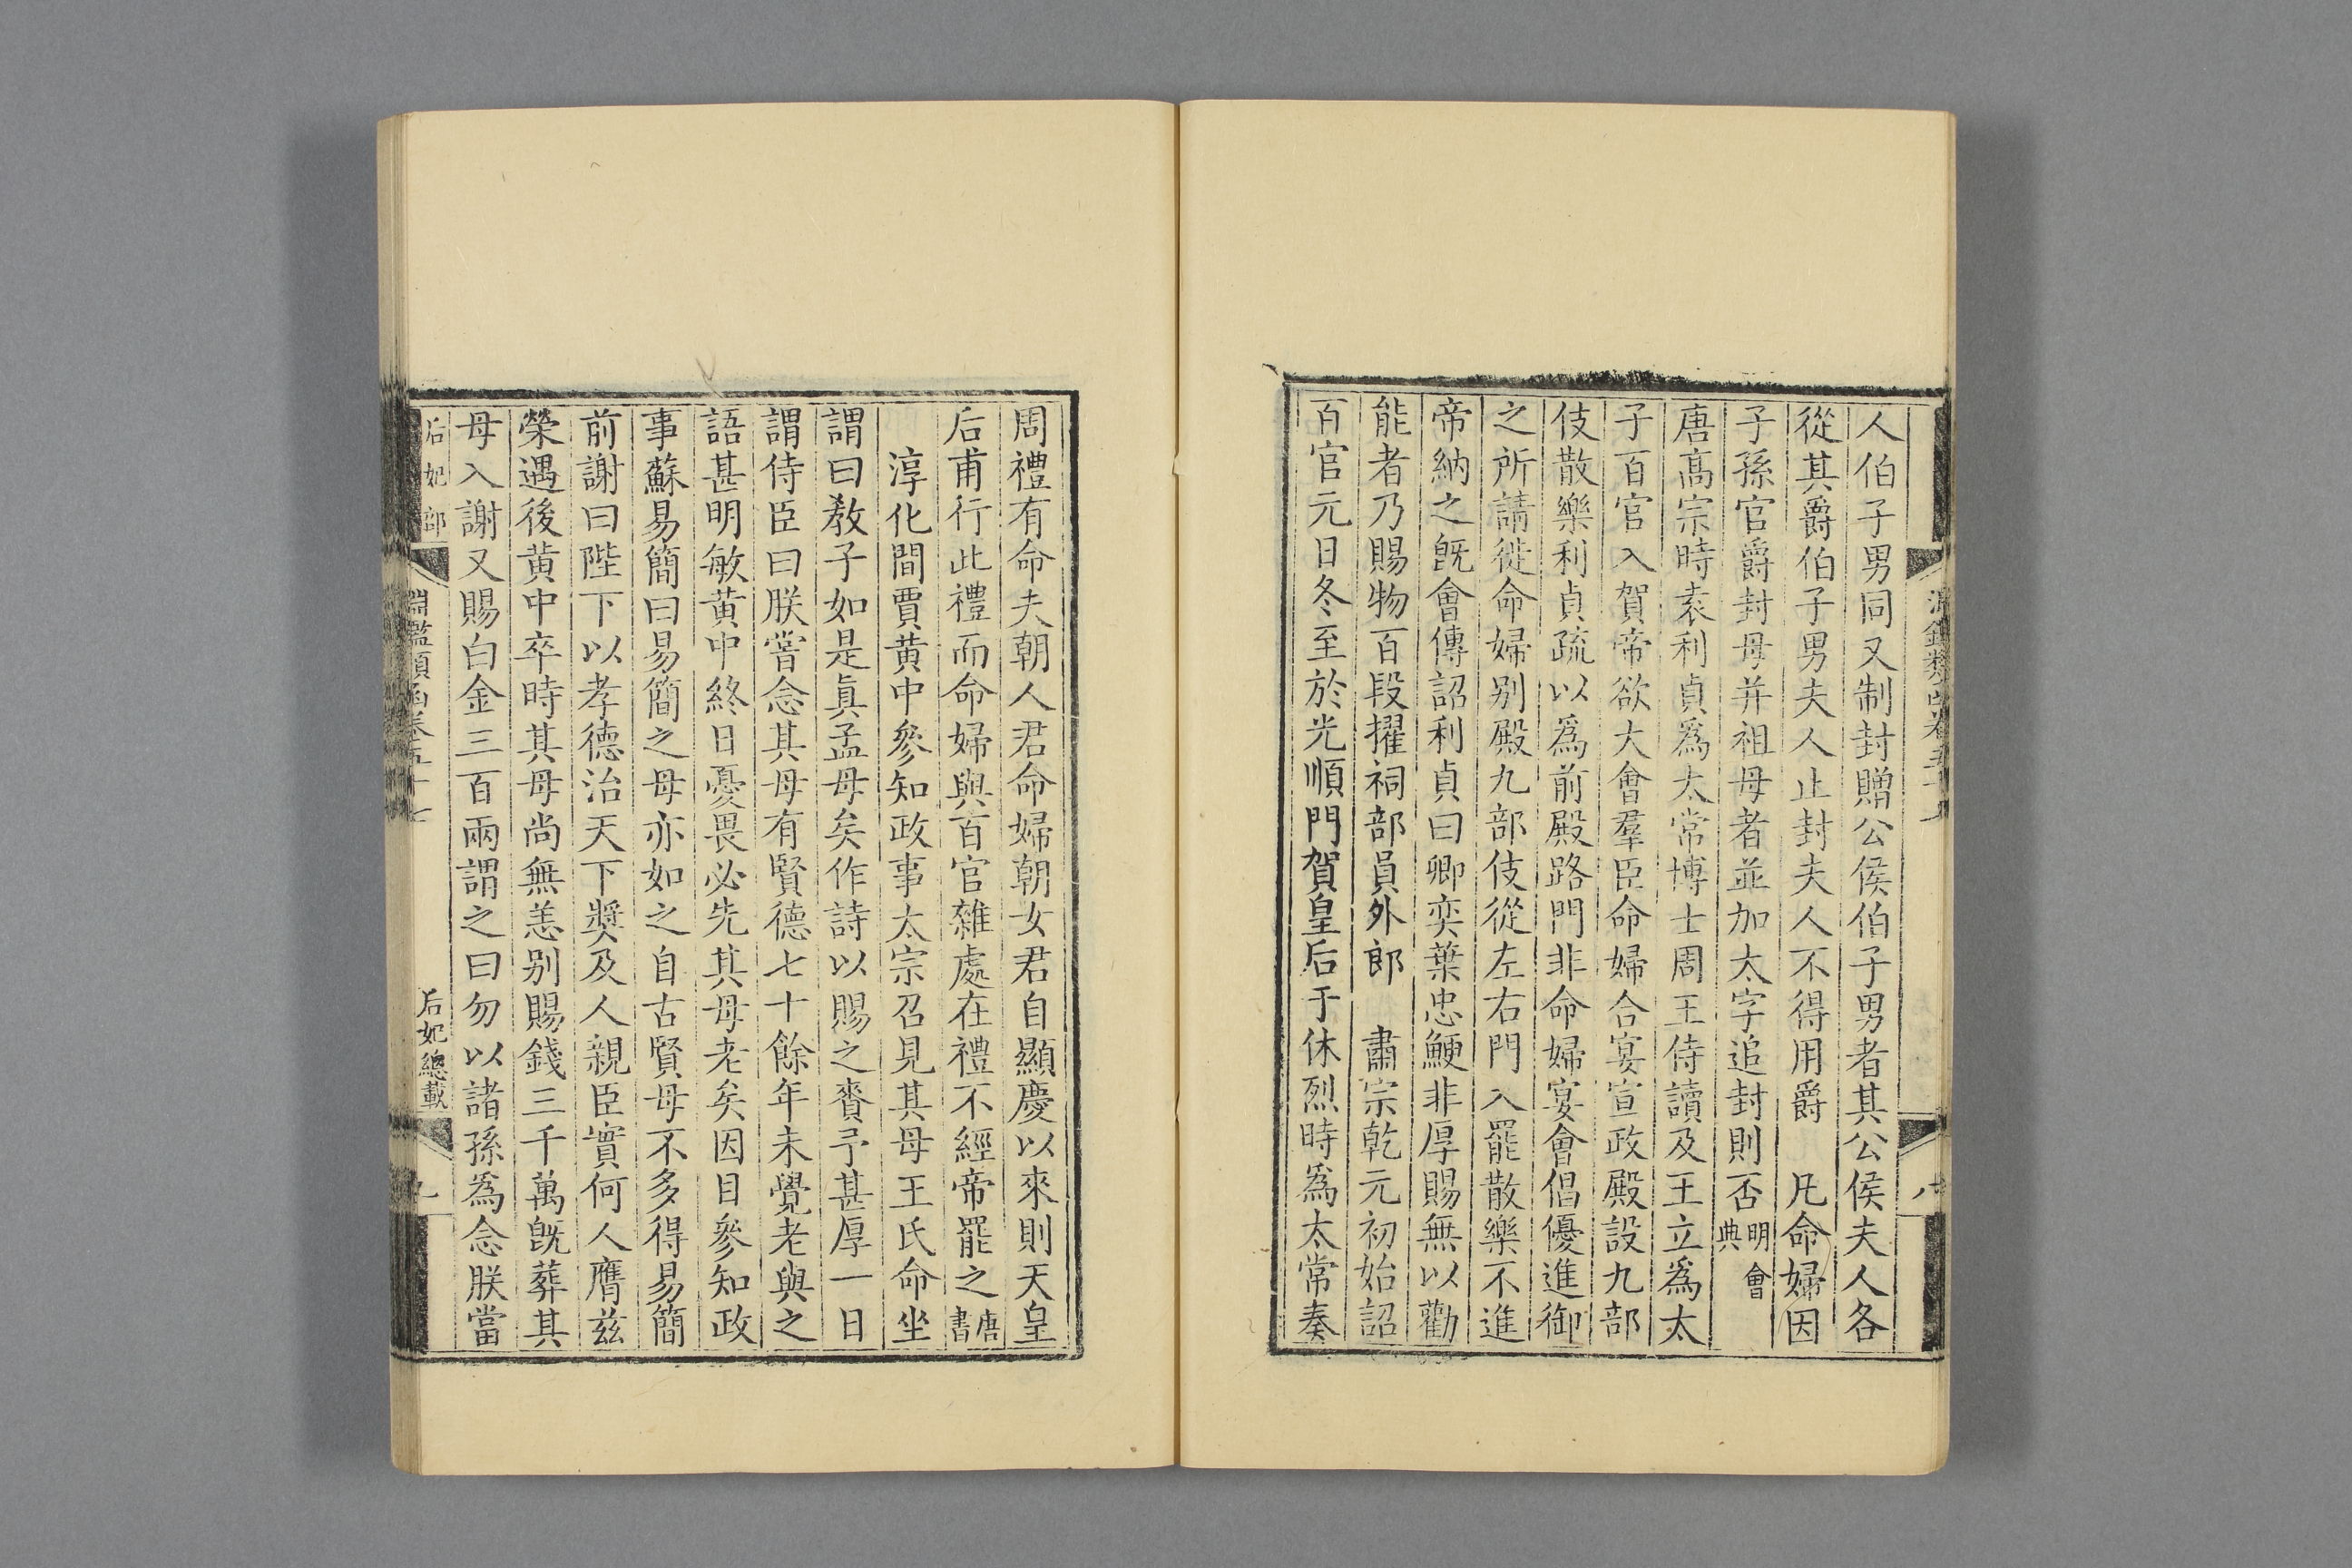 人伯子男同又制封贈公侯伯子男者其公侯夫人各
從其爵伯子男夫人止封夫人不得用爵　凡命婦因
子孫官爵封母并祖母者並加太字追封則否明會典
唐高宗時袁利貞爲太常博士周王侍讀及王立爲太
子百官入賀帝欲大會羣臣命婦合宴宣政殿設九部
伎散樂利貞疏以爲前殿路門非命婦宴會倡優進御
之所請徙命婦别殿九部伎從左右門入罷散樂不進
帝納之旣會傳詔利貞曰卿奕葉忠鯁非厚賜無以勸
能者乃賜物百段擢祠部員外郎　肅宗乾元初始詔
百官元日冬至於光順門賀皇后于休烈時爲太常奏
周禮有命夫朝人君命婦朝女君自顯慶以來則天皇
后甫行此禮而命婦與百官雜處在禮不經帝罷之唐書
淳化間賈黄中參知政事太宗召見其母王氏命坐
謂曰教子如是眞孟母矣作詩以賜之賚予甚厚一日
謂侍臣曰朕嘗念其母有賢德七十餘年未覺老與之
語甚明敏黄中終日憂畏必先其母老矣因目參知政
事蘇易簡曰易簡之母亦如之自古賢母不多得易簡
前謝曰陛下以孝德治天下奬及人親臣實何人膺兹
榮遇後黄中卒時其母尚無恙别賜錢三千萬旣葬其
母入謝又賜白金三百兩謂之曰勿以諸孫爲念朕當
后妃部
淵鑑類函卷五十七
后妃總載